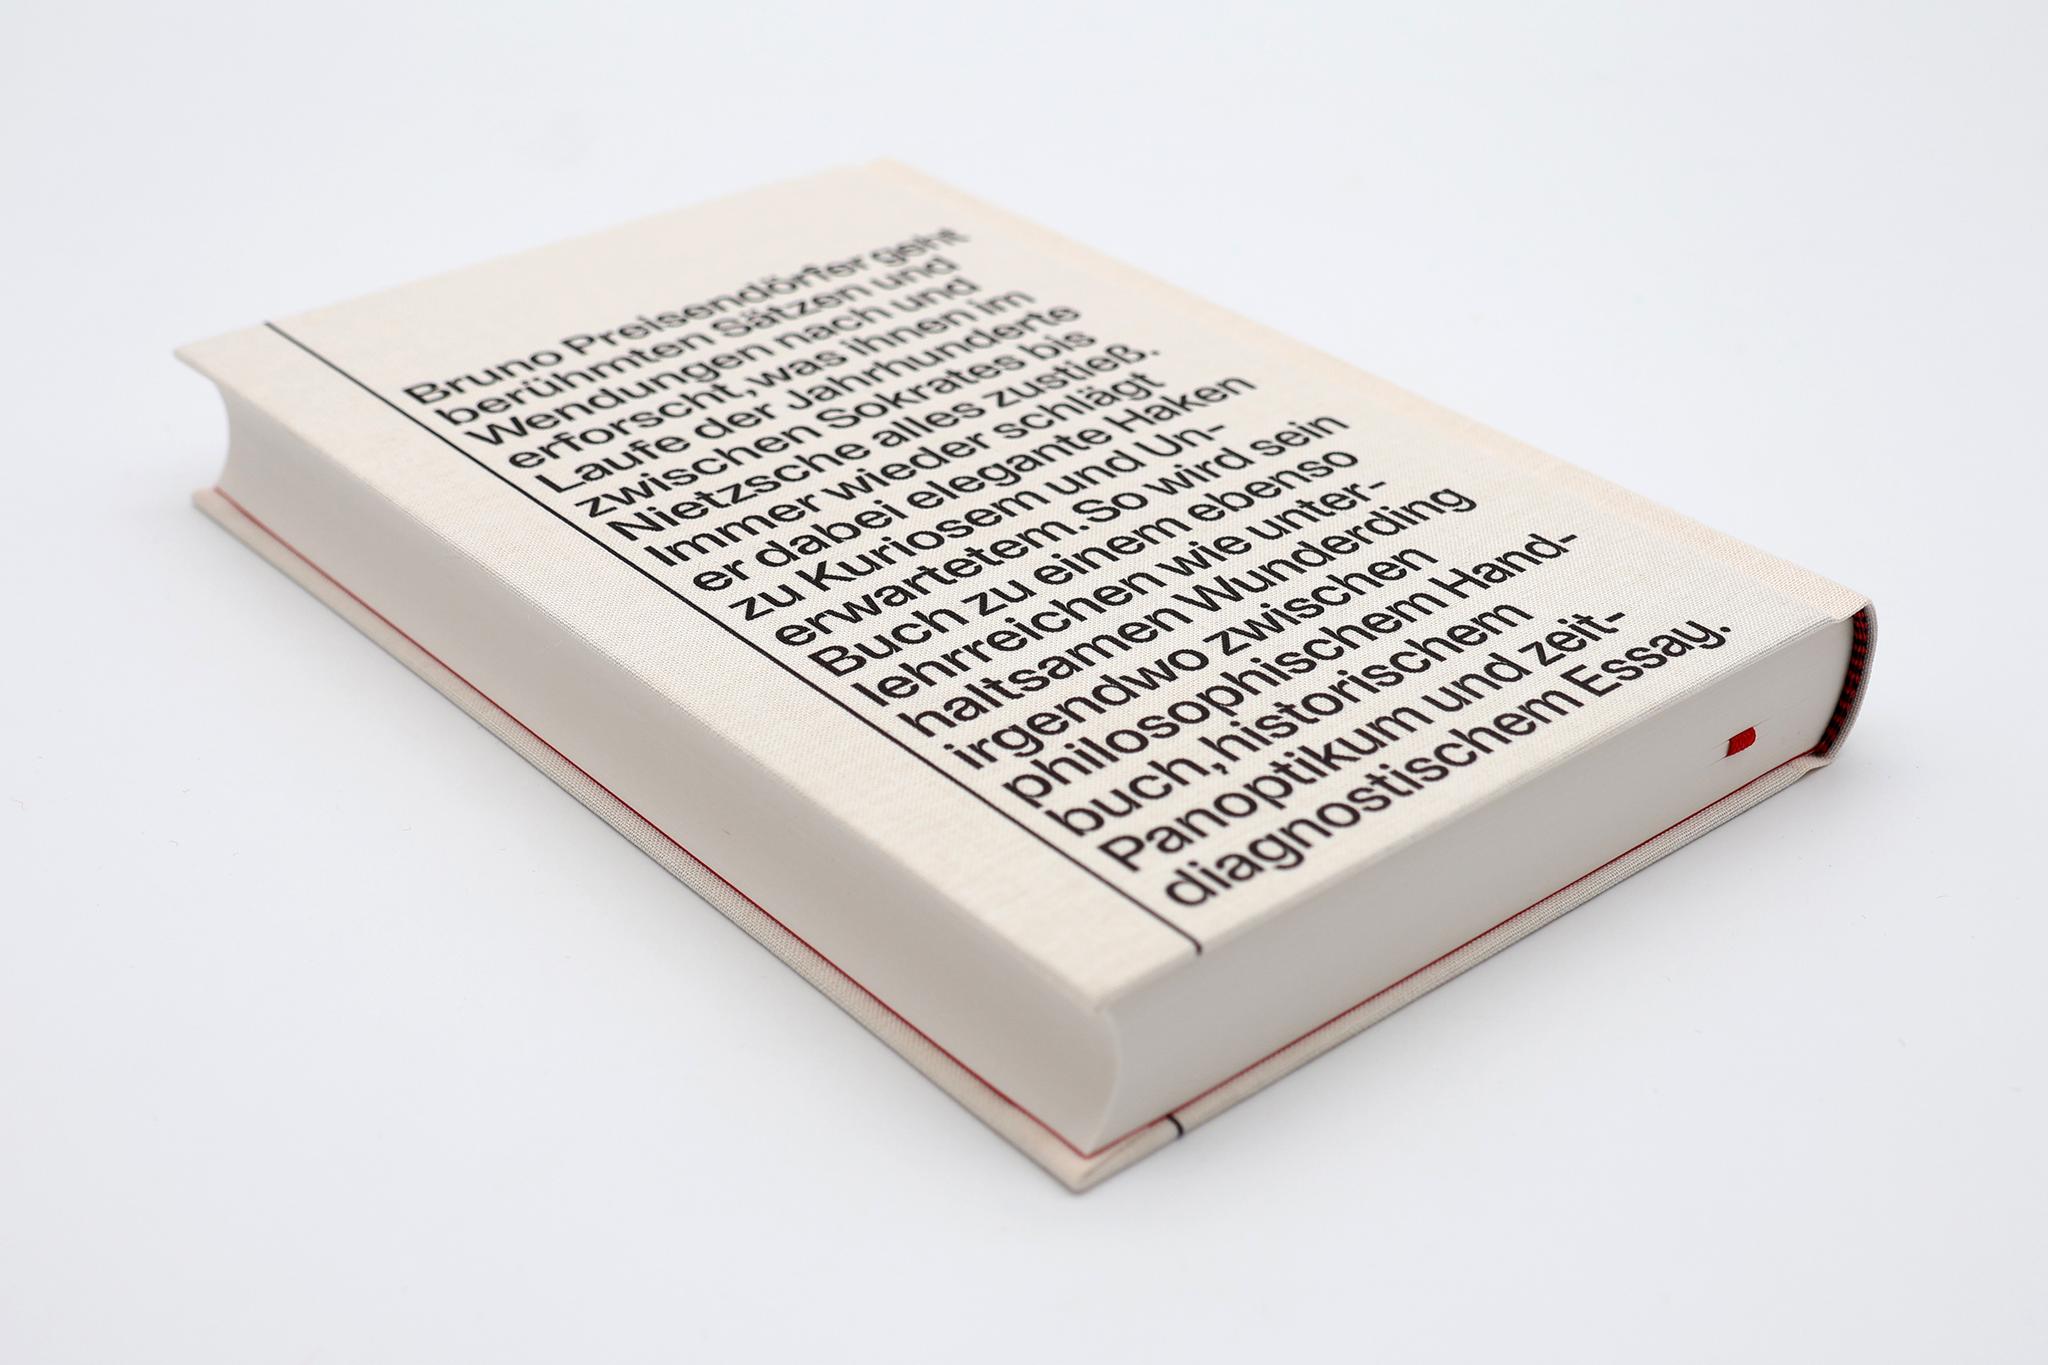 Bruno Preisendörfer geht
berühmten Sätzen und
Wendungen nach und
erforscht, was ihnen im
Laufe der Jahrhunderte
zwischen Sokrates bis
Nietzsche alles zustieß.
Immer wieder schlägt
er dabei elegante Haken
zu Kuriosem und Un-
erwartetem. So wird sein
Buch zu einem ebenso
lehrreichen wie unter-
haltsamen Wunderding
irgendwo zwischen
philosophischem Hand-
buch, historischem
Panoptikum und zeit-
diagnostischem Essay.